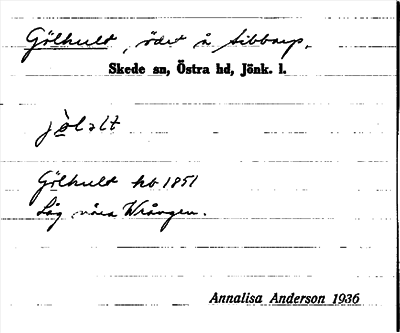 Gölhult, öde å Sibbarp.
Skede sn, Östra hd, Jönk. l.
jö̀lalt
Gölhult hb 1851
Låg nära Wrången.
Annalisa Anderson 1936